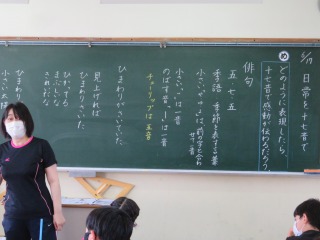 6/17 日常を十七音で
め どのように表現したら、
十七音で感動が伝わるだろう。
俳句
五七五
季語 季節を表す言葉
小さい「ゃゅょ」は、前の字と合わせて一音
小さい「っ」は一音
のばす音「ー」は一音
チューリップは五音
ひまわりがさいていた
見上げれば
ひまわりさいた
ひまわり
小さい太陽